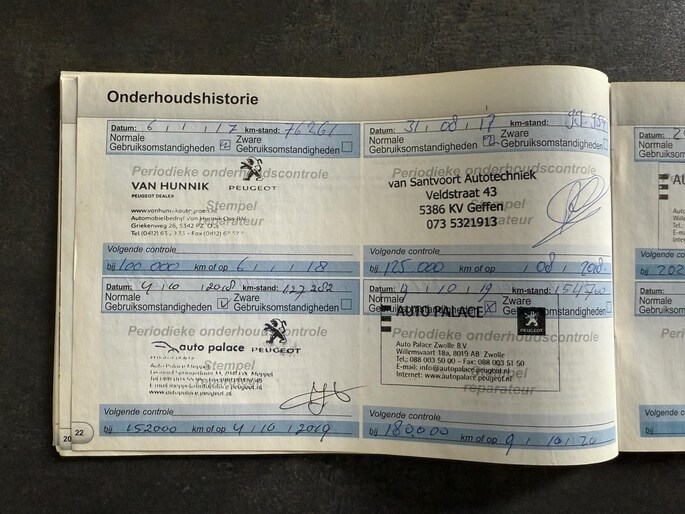 Onderhoudshistorie
Datum: 6 , 1 , 17 km-stand: 76261
Normale Gebruiksomstandigheden Zware Gebruiksomstandigheden
Periodieke onderhoudscontrole
VAN HUNNIK PEUGEOT
PEUGEOT DEALER
Stempel
reparateur
Automobielbedrijf van Hunnik Oss B.V.
Griekenweg 26, 5342 PZ Oss
Volgende controle
bij 100 000 km of op 6 , 1 , 18
Datum: 31 , 08 , 17 km-stand:
Normale Gebruiksomstandigheden Zware Gebruiksomstandigheden
Periodieke onderhoudscontrole
van Santvoort Autotechniek
Veldstraat 43
Stempel
5386 KV Geffen
reparateur
073 5321913
Volgende controle
bij 125 000 km of op , 08 , 2018
Datum: 4 , 10 , 2018 km-stand: 127282
Normale Gebruiksomstandigheden Zware Gebruiksomstandigheden
Periodieke onderhoudscontrole
auto palace PEUGEOT
Stempel
reparateur
www.autopalace.peugeot.nl
Volgende controle
bij 152000 km of op 4 , 10 , 2019
Datum: , 10 , 19 km-stand:
Normale Gebruiksomstandigheden Zware Gebruiksomstandigheden
AUTO PALACE PEUGEOT
Periodieke onderhoudscontrole
Auto Palace Zwolle B.V.
Willemsvaart 18a, 8019 AB Zwolle
Stempel
Tel.: 088 003 50 00 - Fax: 088 003 51 50
E-mail: info@autopalace.peugeot.nl
Internet: www.autopalace.peugeot.nl
reparateur
Volgende controle
bij 180.000 km of op 9 , 10 , 20
20
22